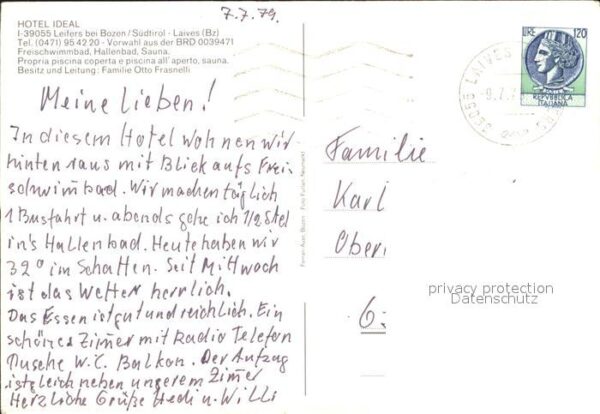 7.7.79.
HOTEL IDEAL
I-39055 Leifers bei Bozen/Südtirol - Laives (Bz)
Tel. (0471) 95 42 20 - Vorwahl aus der BRD 0039471
Freischwimmbad, Hallenbad, Sauna.
Propria piscina coperta e piscina all'aperto, sauna.
Besitz und Leitung: Familie Otto Frasnelli
Meine Lieben!
In diesem Hotel wohnen wir
hinten raus mit Blick aufs Frei-
schwimbad. Wir machen täglich
1 Busfahrt u. abends gehe ich 1/2 Std
in's Hallenbad. Heute haben wir
32° im Schatten. Seit Mittwoch
ist das Wetter herrlich.
Das Essen ist gut und reichlich. Ein
schönes Zimer mit Radio Telefon
Dusche W.C. Balkon. Der Aufzug
ist gleich neben unserem Zimer
Herzliche Grüße Hedi u. Willi
LIRE 120
REPVBBLICA
ITALIANA
39055 LAIVES
Familie
Karl
Ober
6
privacy protection
Datenschutz